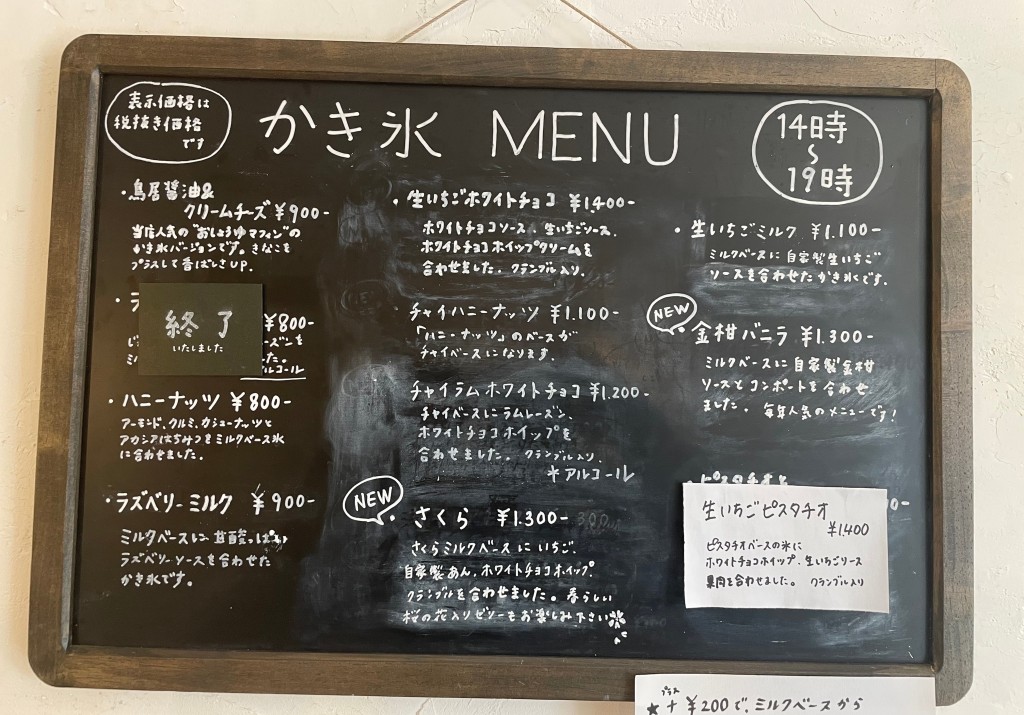 表示価格は
税抜き価格
です
かき氷 MENU
14時
〜
19時
・鳥居醤油&
クリームチーズ ¥900-
当店人気の"おしょうゆマフィン"の
かき氷バージョンです。きなこを
プラスして香ばしさUP。
・ラ
¥800-
終了
いたしました
ーズンを
ミル
た。
ルコール
・ハニーナッツ ¥800-
アーモンド、クルミ、カシューナッツと
アカシアはちみつをミルクベース氷
に合わせました。
・ラズベリーミルク ¥900-
ミルクベースに、甘酸っぱい
ラズベリーソースを合わせた
かき氷です。
・生いちごホワイトチョコ ¥1.400-
ホワイトチョコソース、生いちごソース、
ホワイトチョコホイップクリームを
合わせました。クランブル入り。
チャイハニーナッツ ¥1.100-
「ハニーナッツ」のベースが
チャイベースになります。
チャイラムホワイトチョコ ¥1.200-
チャイベースにラムレーズン、
ホワイトチョコホイップを
合わせました。クランブル入り。
*アルコール
NEW
・さくら ¥1.300-
さくらミルクベースにいちご、
自家製あん、ホワイトチョコホイップ、
クランブルを合わせました。春らしい
桜の花入りゼリーもお楽しみ下さい
・生いちごミルク ¥1.100-
ミルクベースに自家製生いちご
ソースを合わせたかき氷です。
NEW
・金柑バニラ ¥1.300-
ミルクベースに自家製金柑
ソースとコンポートを合わせ
ました。毎年人気のメニューです!
生いちごピスタチオ
¥1.400
ピスタチオベースの氷に
ホワイトチョコホイップ、生いちごソース
果肉を合わせました。 クランブル入り
プラス
★+¥200で、ミルクベースから